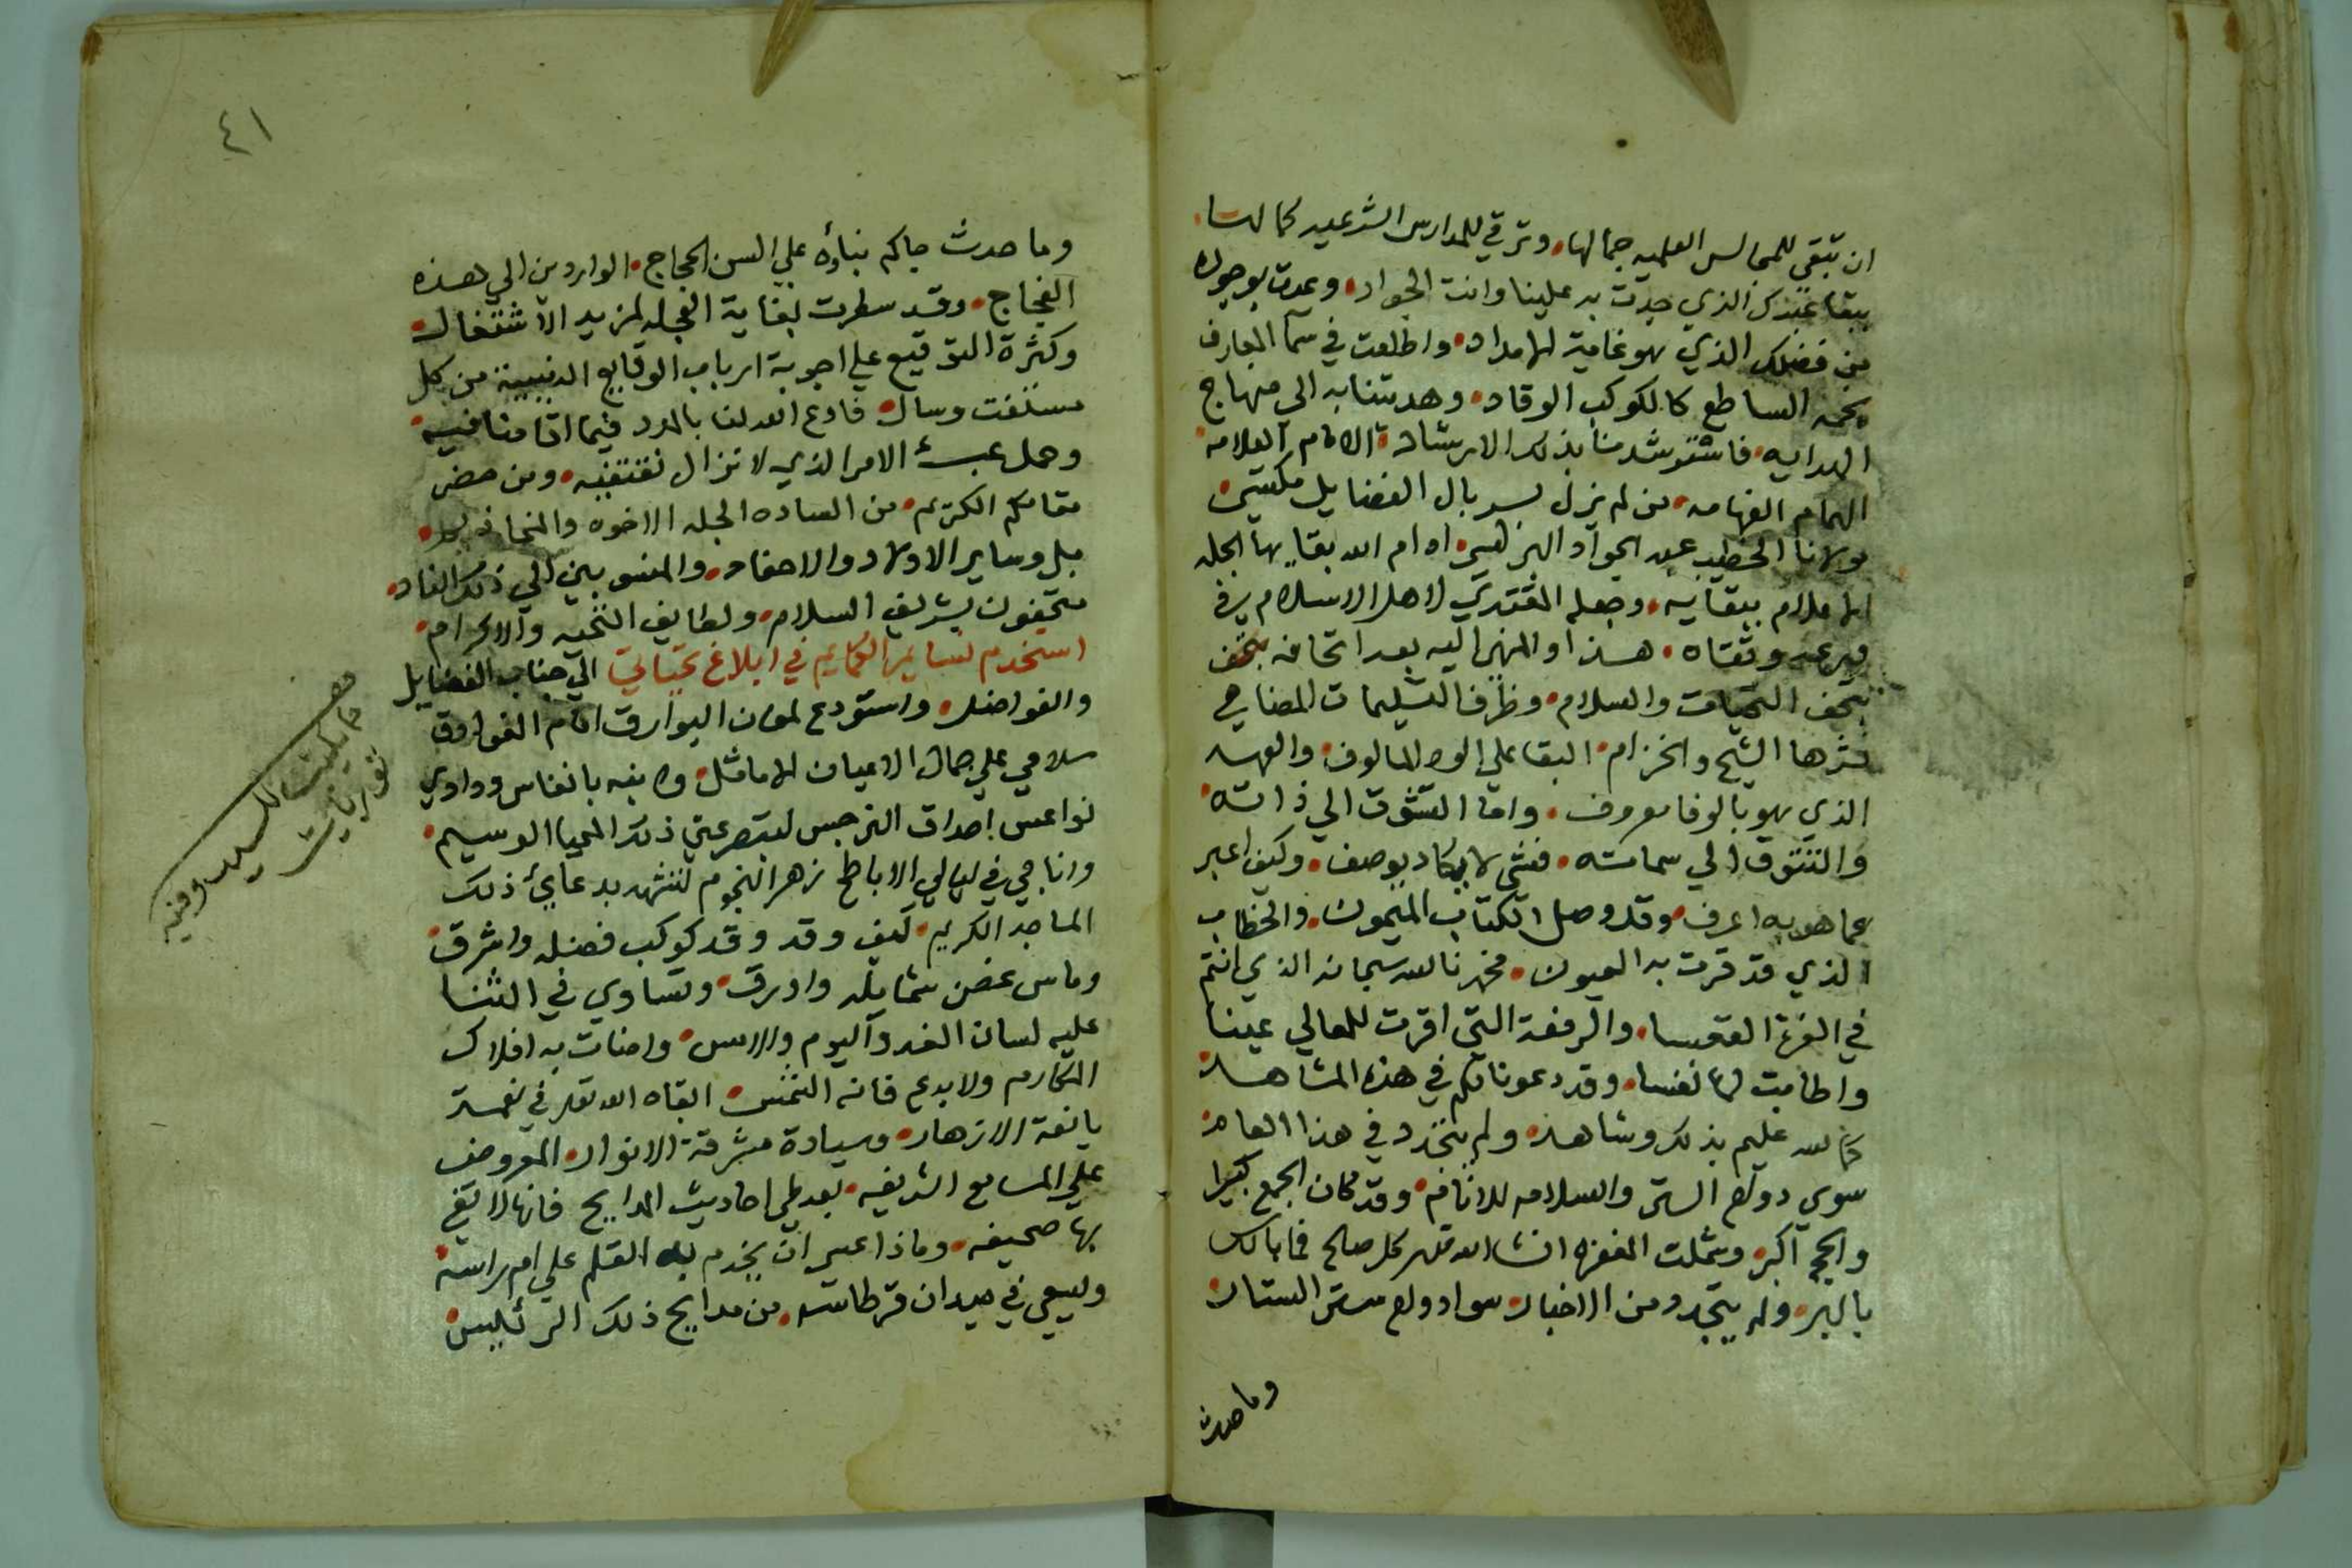 ان تبقي للمجالس العلميه جمالها وترقي للمدارس الشرعيه كمالها
ببقا عبدك الذي جدت به علينا وانت الجواد وعمت بوجوده
من فضلك الذي هو غاية الامداد واطلعت في سما المعارف
نجمه الساطع كالكوكب الوقاد وهديتنا به الى منهاج
الهدايه فاسترشد منا بذلك الارشاد الامام العلامه
الهمام الفهامه من لم يزل بسربال الفضايل مكتسي
مولانا الخطيب عبد الجواد ادام الله بقايه الجله
الاعلام ببقايه وجعله المقتدي لاهل الاسلام في
ورعه وتقاه هذا والمنهي اليه بعد اتحافه بتحف
بتحف التحيات والسلام وظرف التسليمات المضاهي
نشرها الشيح والخزام البقا علي الود المالوف والعهد
الذي هو بالوفا معروف واما التشوق الي ذاته
والتشوق الي سماته فشي لا يكاد يوصف وكيف اعبر
عما هو به اعرف وقد وصل الكتاب الميمون والخطاب
الذي قد قرت به العيون فحمدنا الله سبحانه الذي انتم
في العزة القعسا والرفعة التي اقرت للمعالي عينا
واطابت لها نفسا وقد دعونا لكم في هذه المشاهد
كما الله عليم بذلك وشاهد ولم يتجدد في هذا العام
سوى دوام الستر والسلامه للانام وقد كان الجمع كبيرا
والحج اكبر وشملت المغفره انشا الله تعالى كل صالح فما بالك
بالبر ولم يتجدد من الاخبار سوا دوام ستر الستار
وما حدث
٤١
وما حدث جاكم نباؤه علي السن الحجاج الواردين الي هذه
الفجاج وقد سطرت لغاية العجله لمزيد الاشتغال
وكثرة التوقيع علي اجوبة ارباب الوقايع الدينية من كل
مستفت وسال فادع الله لنا بالمدد فيما اقامنا فيه
وحمل عبء الامر الذي لا نزال نقتفيه ومن حضر
مقامكم الكريم من الساده الجله الاخوه
بل وساير الاولاد والاحفاد والمنسوبين الي ذلك الناد
متحفون بشريف السلام ولطايف التحيه والاكرام
استخدم نسايم الكمايم في ابلاغ تحياتي الي جناب الفضايل
والفواضل واستودع لمعان البوارق امام الغوادق
سلامي علي جمال الاعيان الاماثل وانبه بانفاس ودادي
نواعس احداق النرجس لتبصر عيني ذلك المحيا الوسيم
واناجي في ليالي الاباطح زهر النجوم لتشهد بدعايي ذلك
الماجد الكريم كيف وقد وقد كوكب فضله واشرق
وماس غصن شمايله واورق وتساوي في الثنا
عليه لسان الغد واليوم والامس واضات به افلاك
المكارم ولا بدع فانه الشمس ابقاه الله تعالى في نعمة
يانعة الازهار وسيادة مشرقة الانوار المعروض
علي المسامع الشريفه بعد طي احاديث المدايح فانها لا تفي
بها صحيفه وماذا عسى ان يخدم به القلم علي ام راسه
ويسعي في ميدان قرطاسه من مدايح ذلك الرئيس
مما كتبت للسيد وفيه
توريات